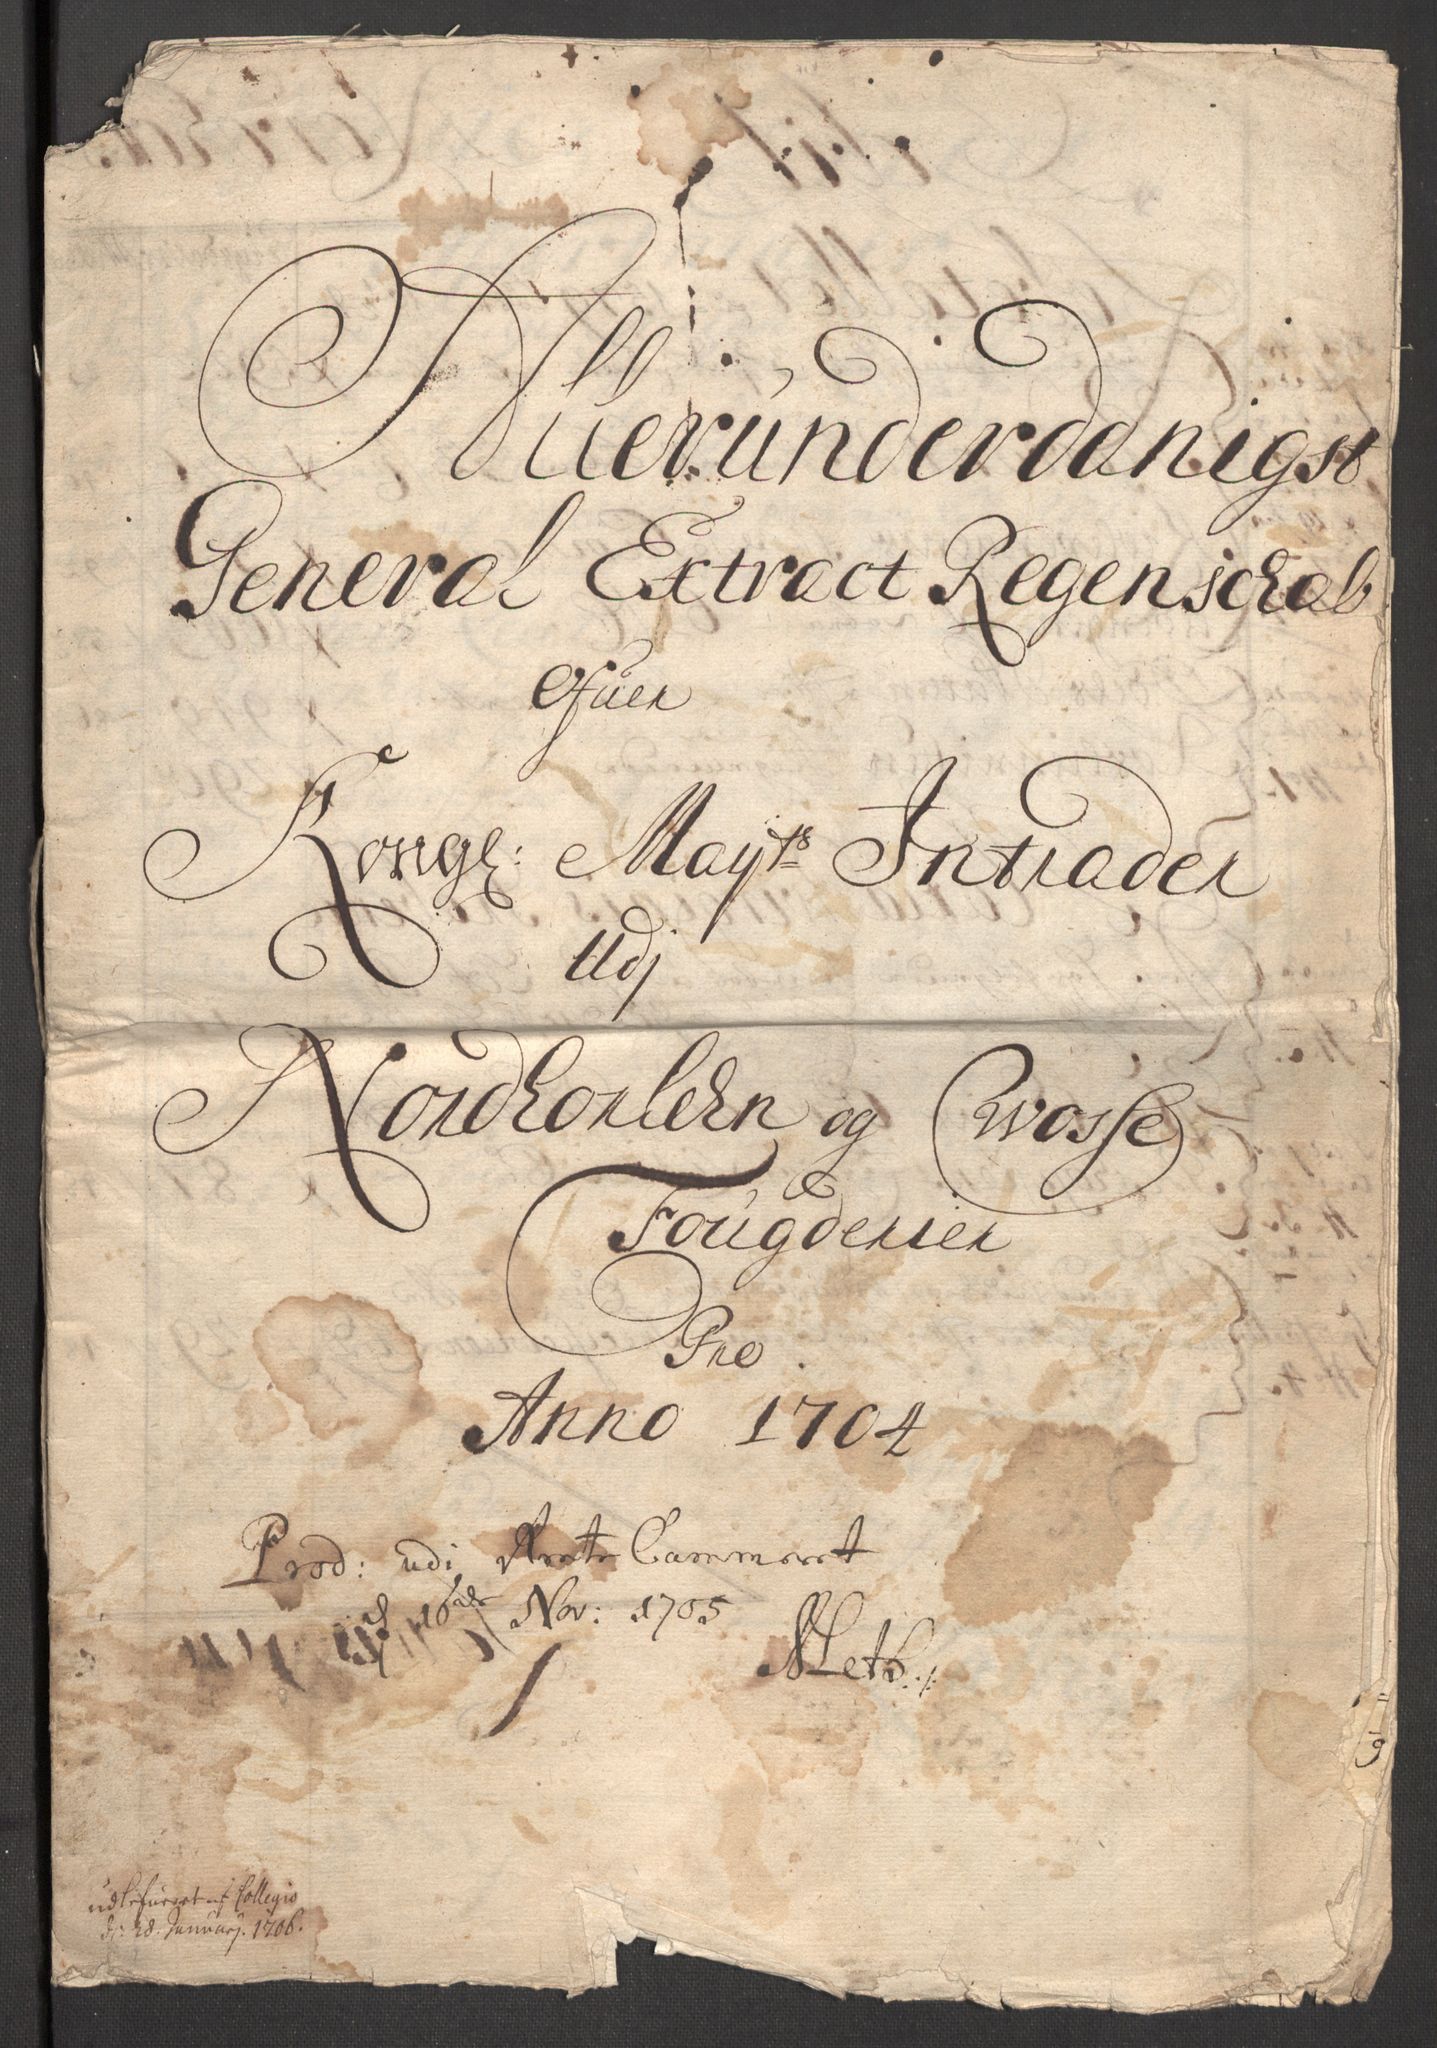 Allerúnderdanigst
General Extract Regenschab
ofuer
Kongl: Mayts Intrader
Udj
Nordhorlehn og Wosse
Foúgderier
Pro
Anno 1704
Prod: udi Rente Cammeret
d 16de Nov: 1705
udlefueret af Collegio
d: 28. Januarj. 1706.